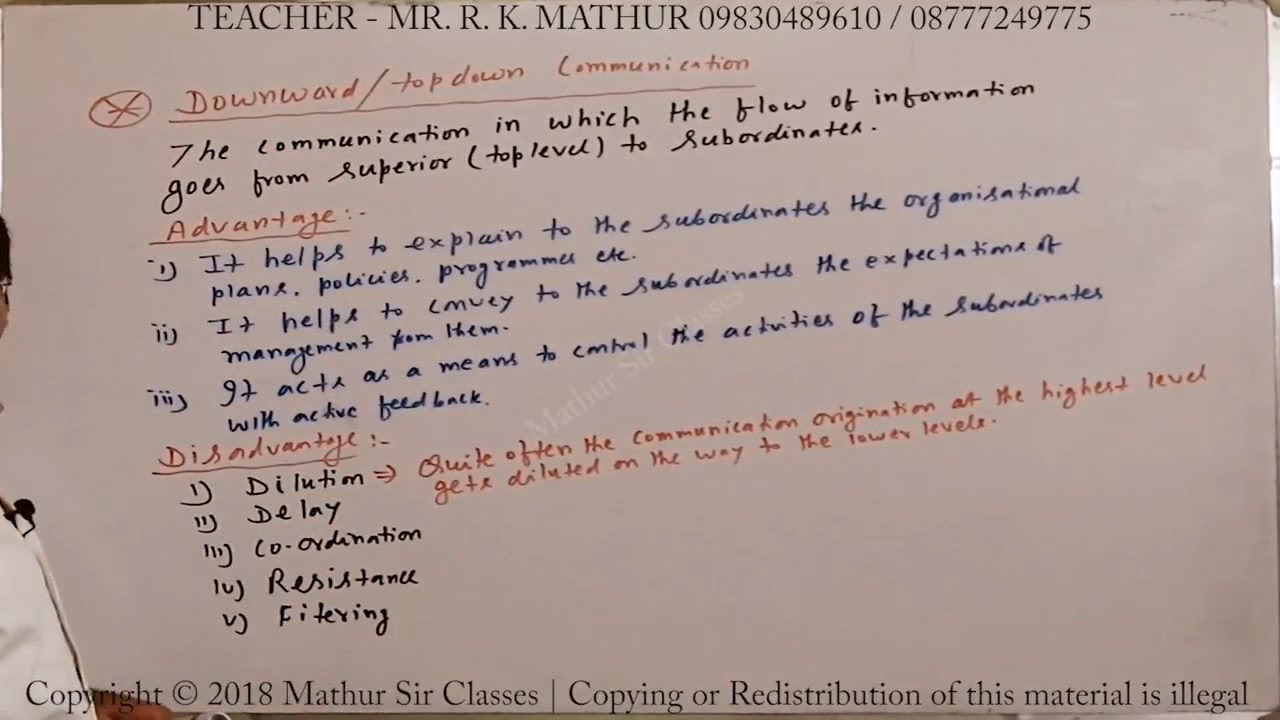 TEACHER - MR. R. K. MATHUR 09830489610 / 08777249775
Downward/topdown Communication
The communication in which the flow of information
goes from superior (top level) to subordinates.
Advantage:-
i) It helps to explain to the subordinates the organisational
plans, policies, programmes etc.
ii) It helps to convey to the subordinates the expectations of
management from them.
iii) It acts as a means to control the activities of the subordinates
with active feedback.
Disadvantage:-
i) Dilution ⇒ Quite often the communication origination at the highest level
gets diluted on the way to the lower levels.
ii) Delay
iii) Co-ordination
iv) Resistance
v) Fitering
Mathur Sir Classes
Copyright © 2018 Mathur Sir Classes | Copying or Redistribution of this material is illegal